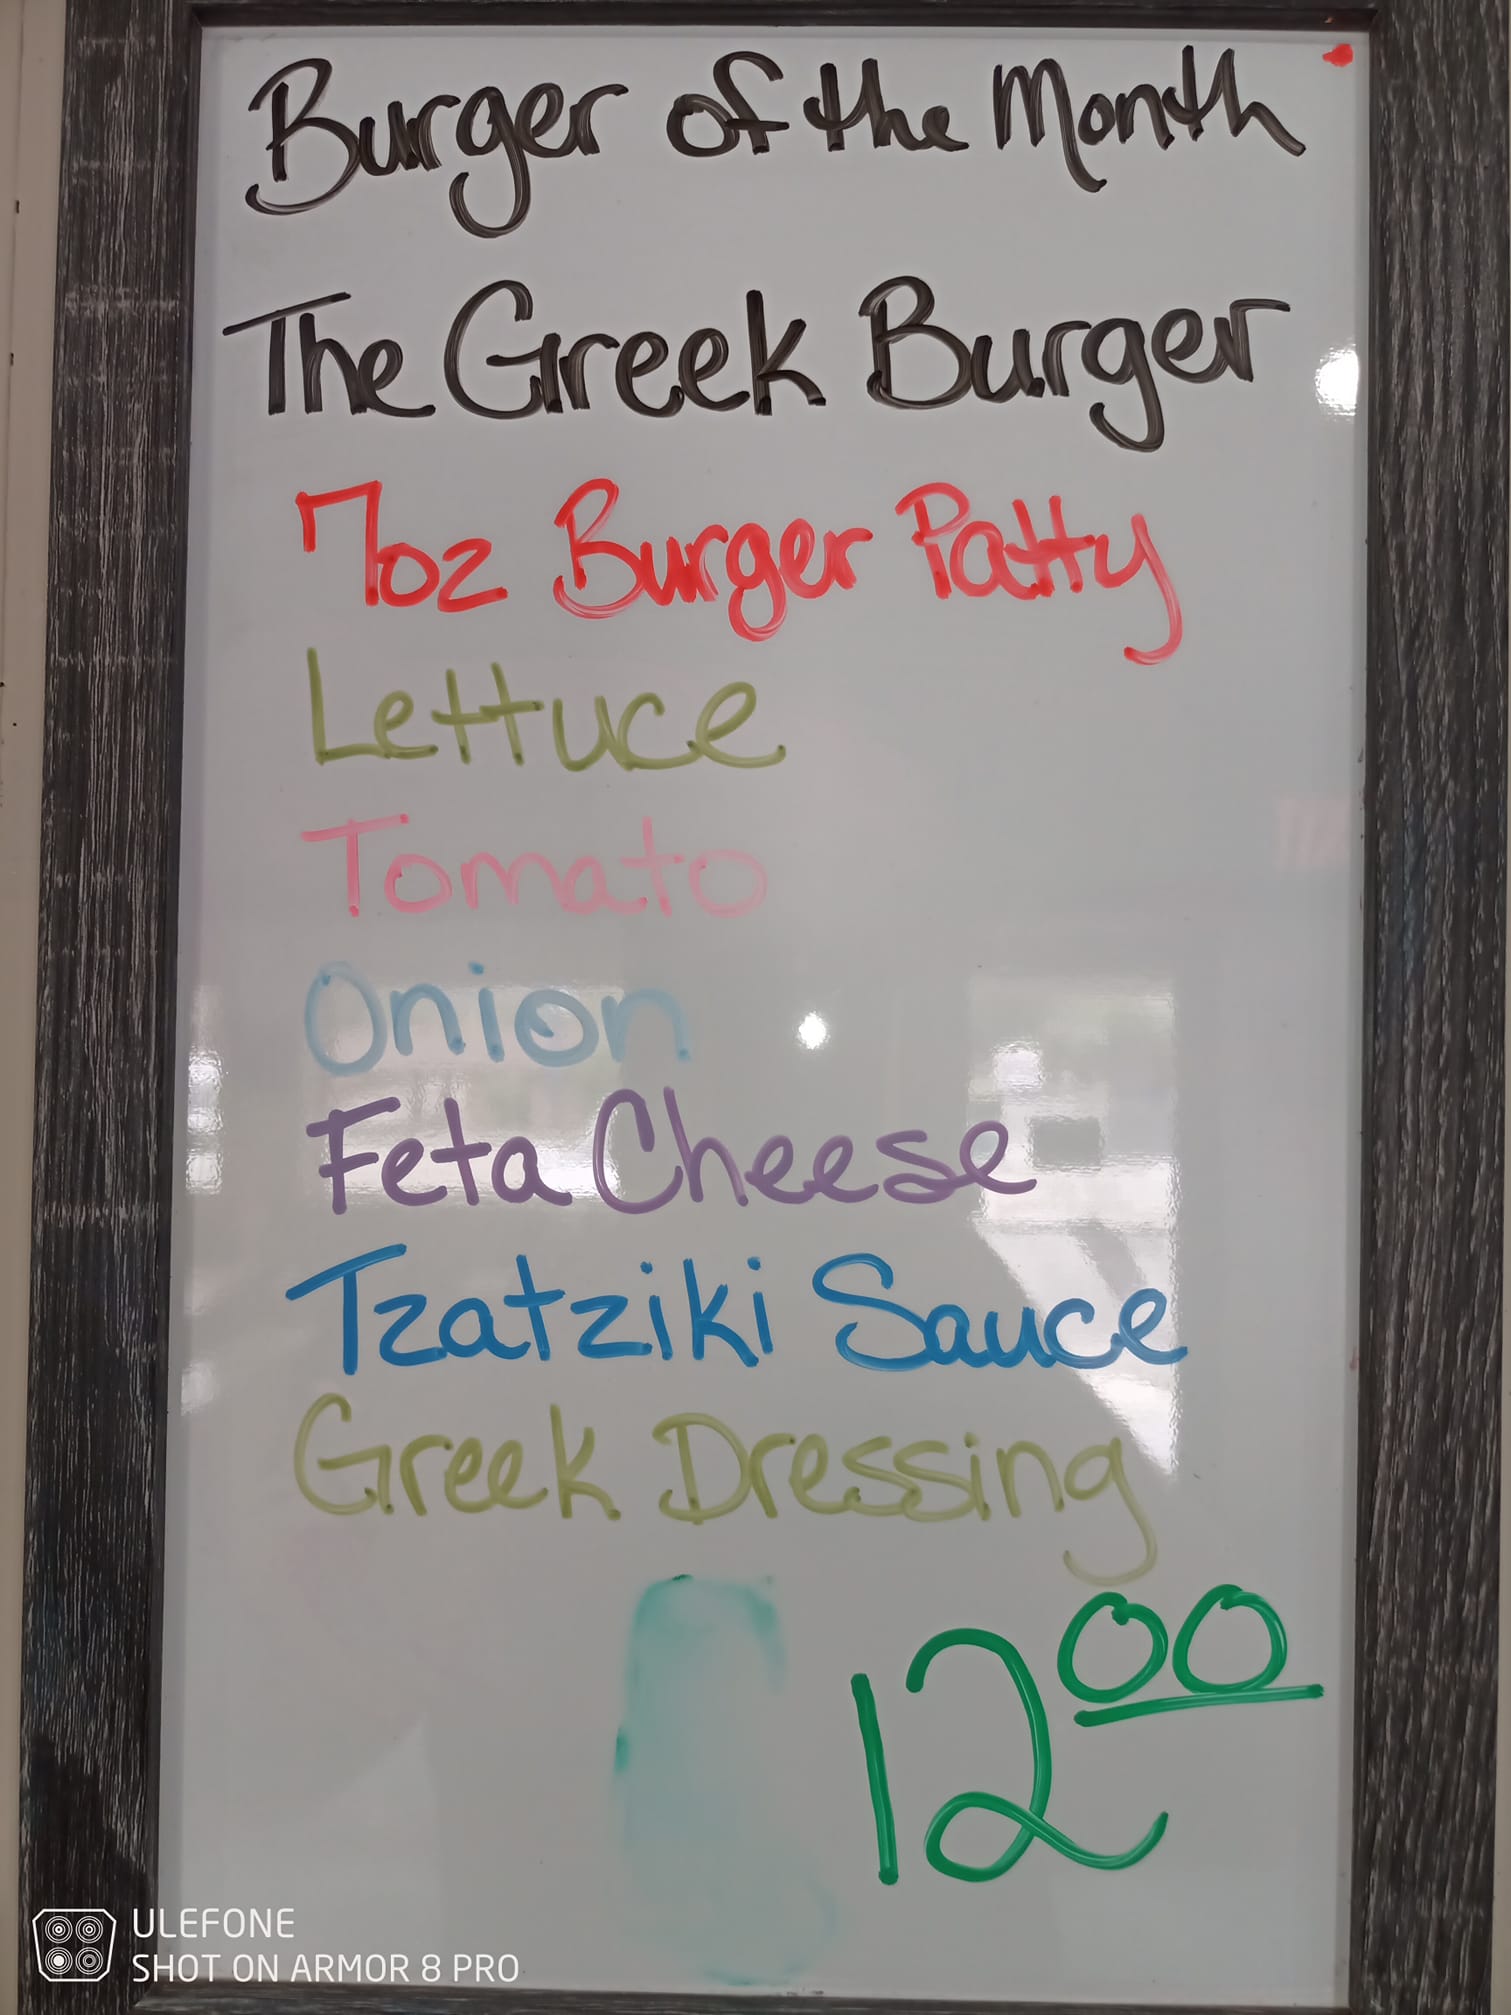 Burger of the Month
The Greek Burger
7oz Burger Patty
Lettuce
Tomato
Onion
Feta Cheese
Tzatziki Sauce
Greek Dressing
12 00
ULEFONE
SHOT ON ARMOR 8 PRO